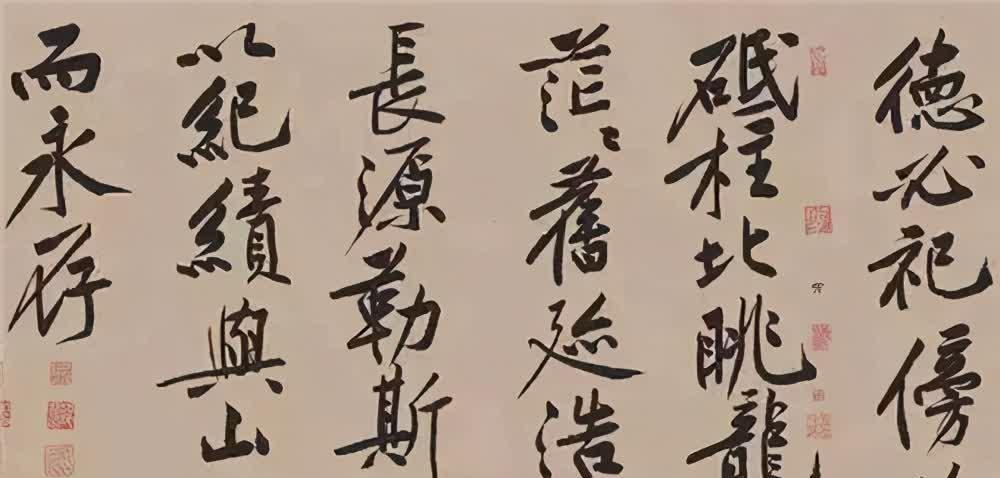 德必祀傍
砥柱北眺龍
茫〻舊迹浩
長源勒斯
以紀績與山
而永存